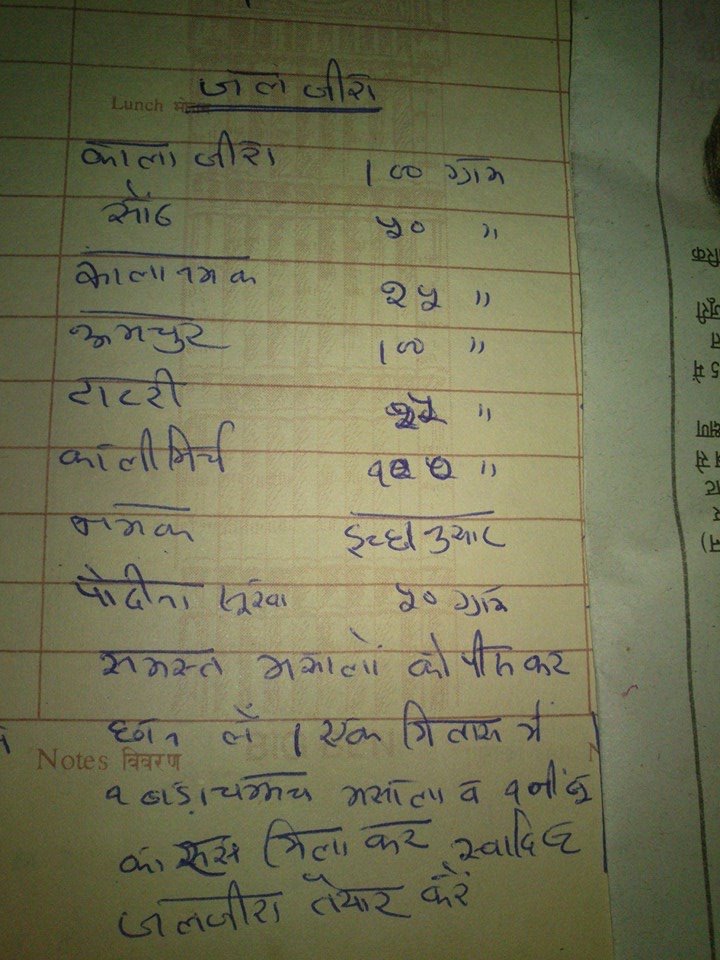 जलजीरा
Lunch
काला जीरा 100 ग्राम
सौंठ ५० "
काला नमक २५ "
अमचुर 100 "
टाटरी "
काली मिर्च "
नमक इच्छानुसार
पोदीना सूखा ५० ग्राम
समस्त मसालों को पीसकर
छान लें । एक गिलास में
Notes विवरण
१ बड़ा चम्मच मसाला व १ नींबू
का रस मिला कर स्वादिष्ट
जलजीरा तैयार करें